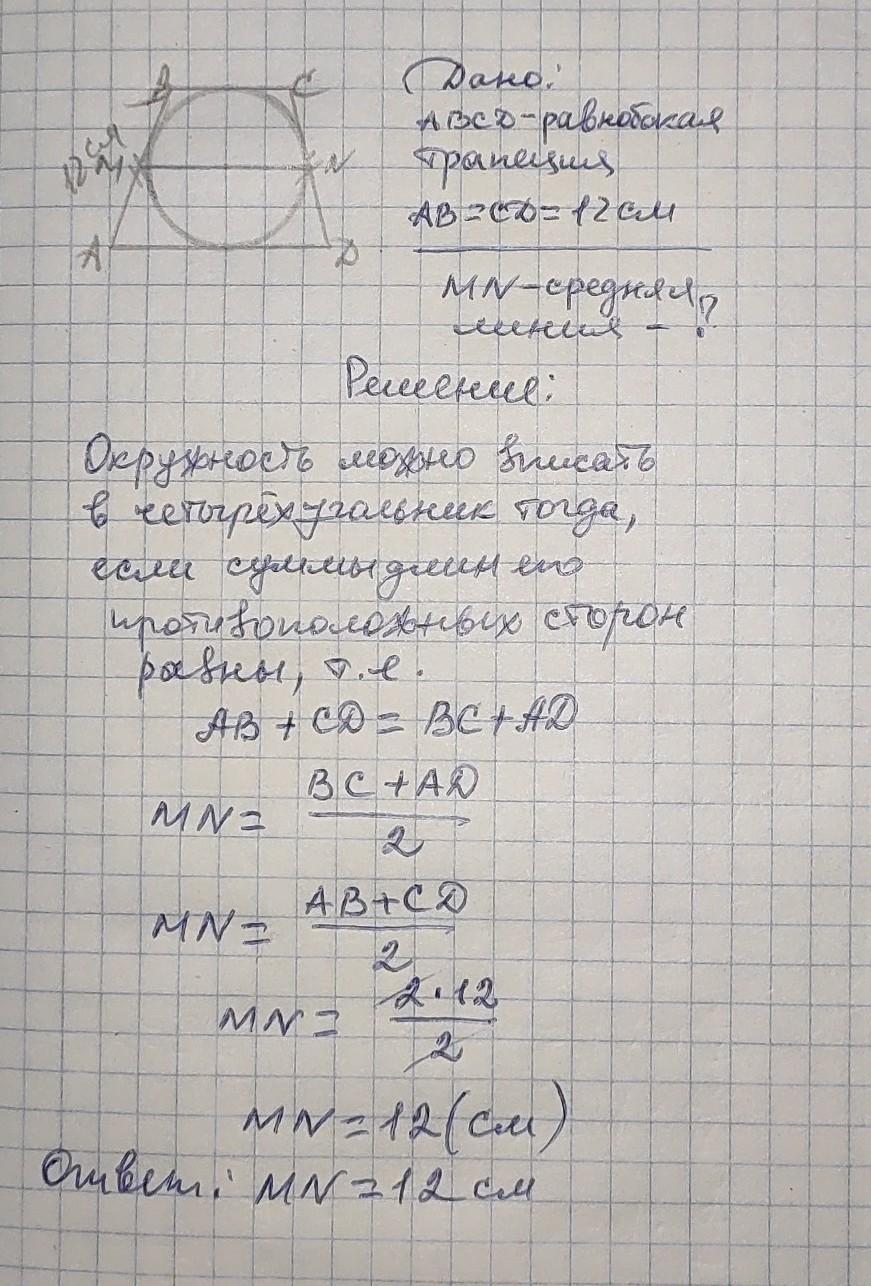 B C
12 см
M N
A D
Дано:
ABCD-равнобокая
трапеция
AB=CD=12см
MN-средняя
линия - ?
Решение:
Окружность можно вписать
в четырёхугольник тогда,
если суммы длин его
противоположных сторон
равны, т.е.
AB + CD = BC + AD
MN = BC + AD / 2
MN = AB + CD / 2
MN = 2·12 / 2
MN = 12 (см)
Ответ: MN = 12 см